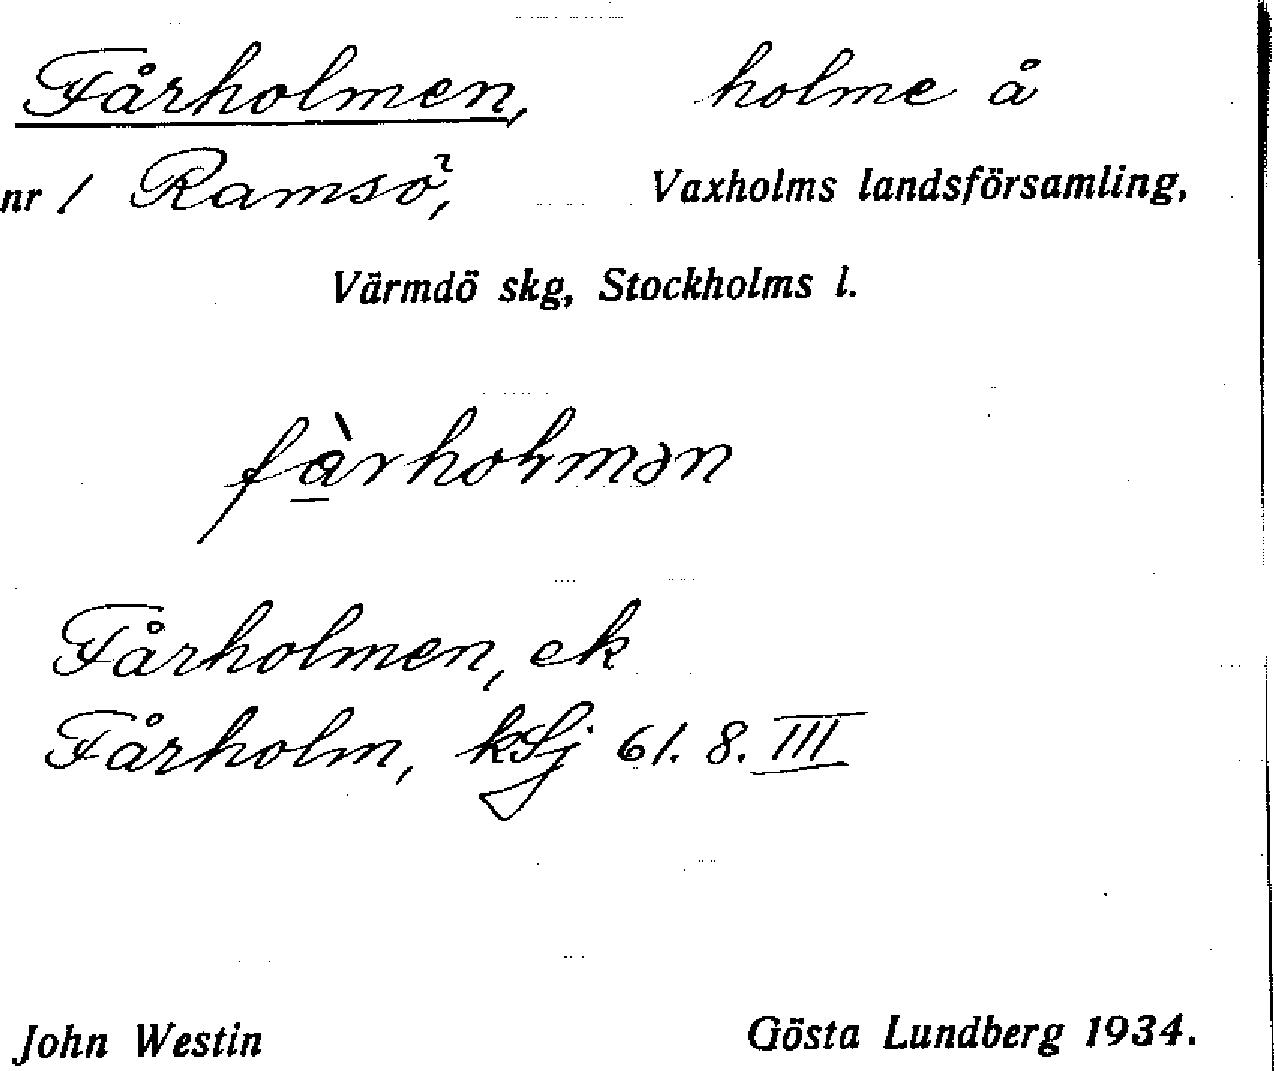 Fårholmen, holme å
nr 1 Ramsö, Vaxholms landsförsamling,
Värmdö skg, Stockholms l.
fàrholmən
Fårholmen, ek
Fårholm, kSj 61. 8. III
John Westin Gösta Lundberg 1934.